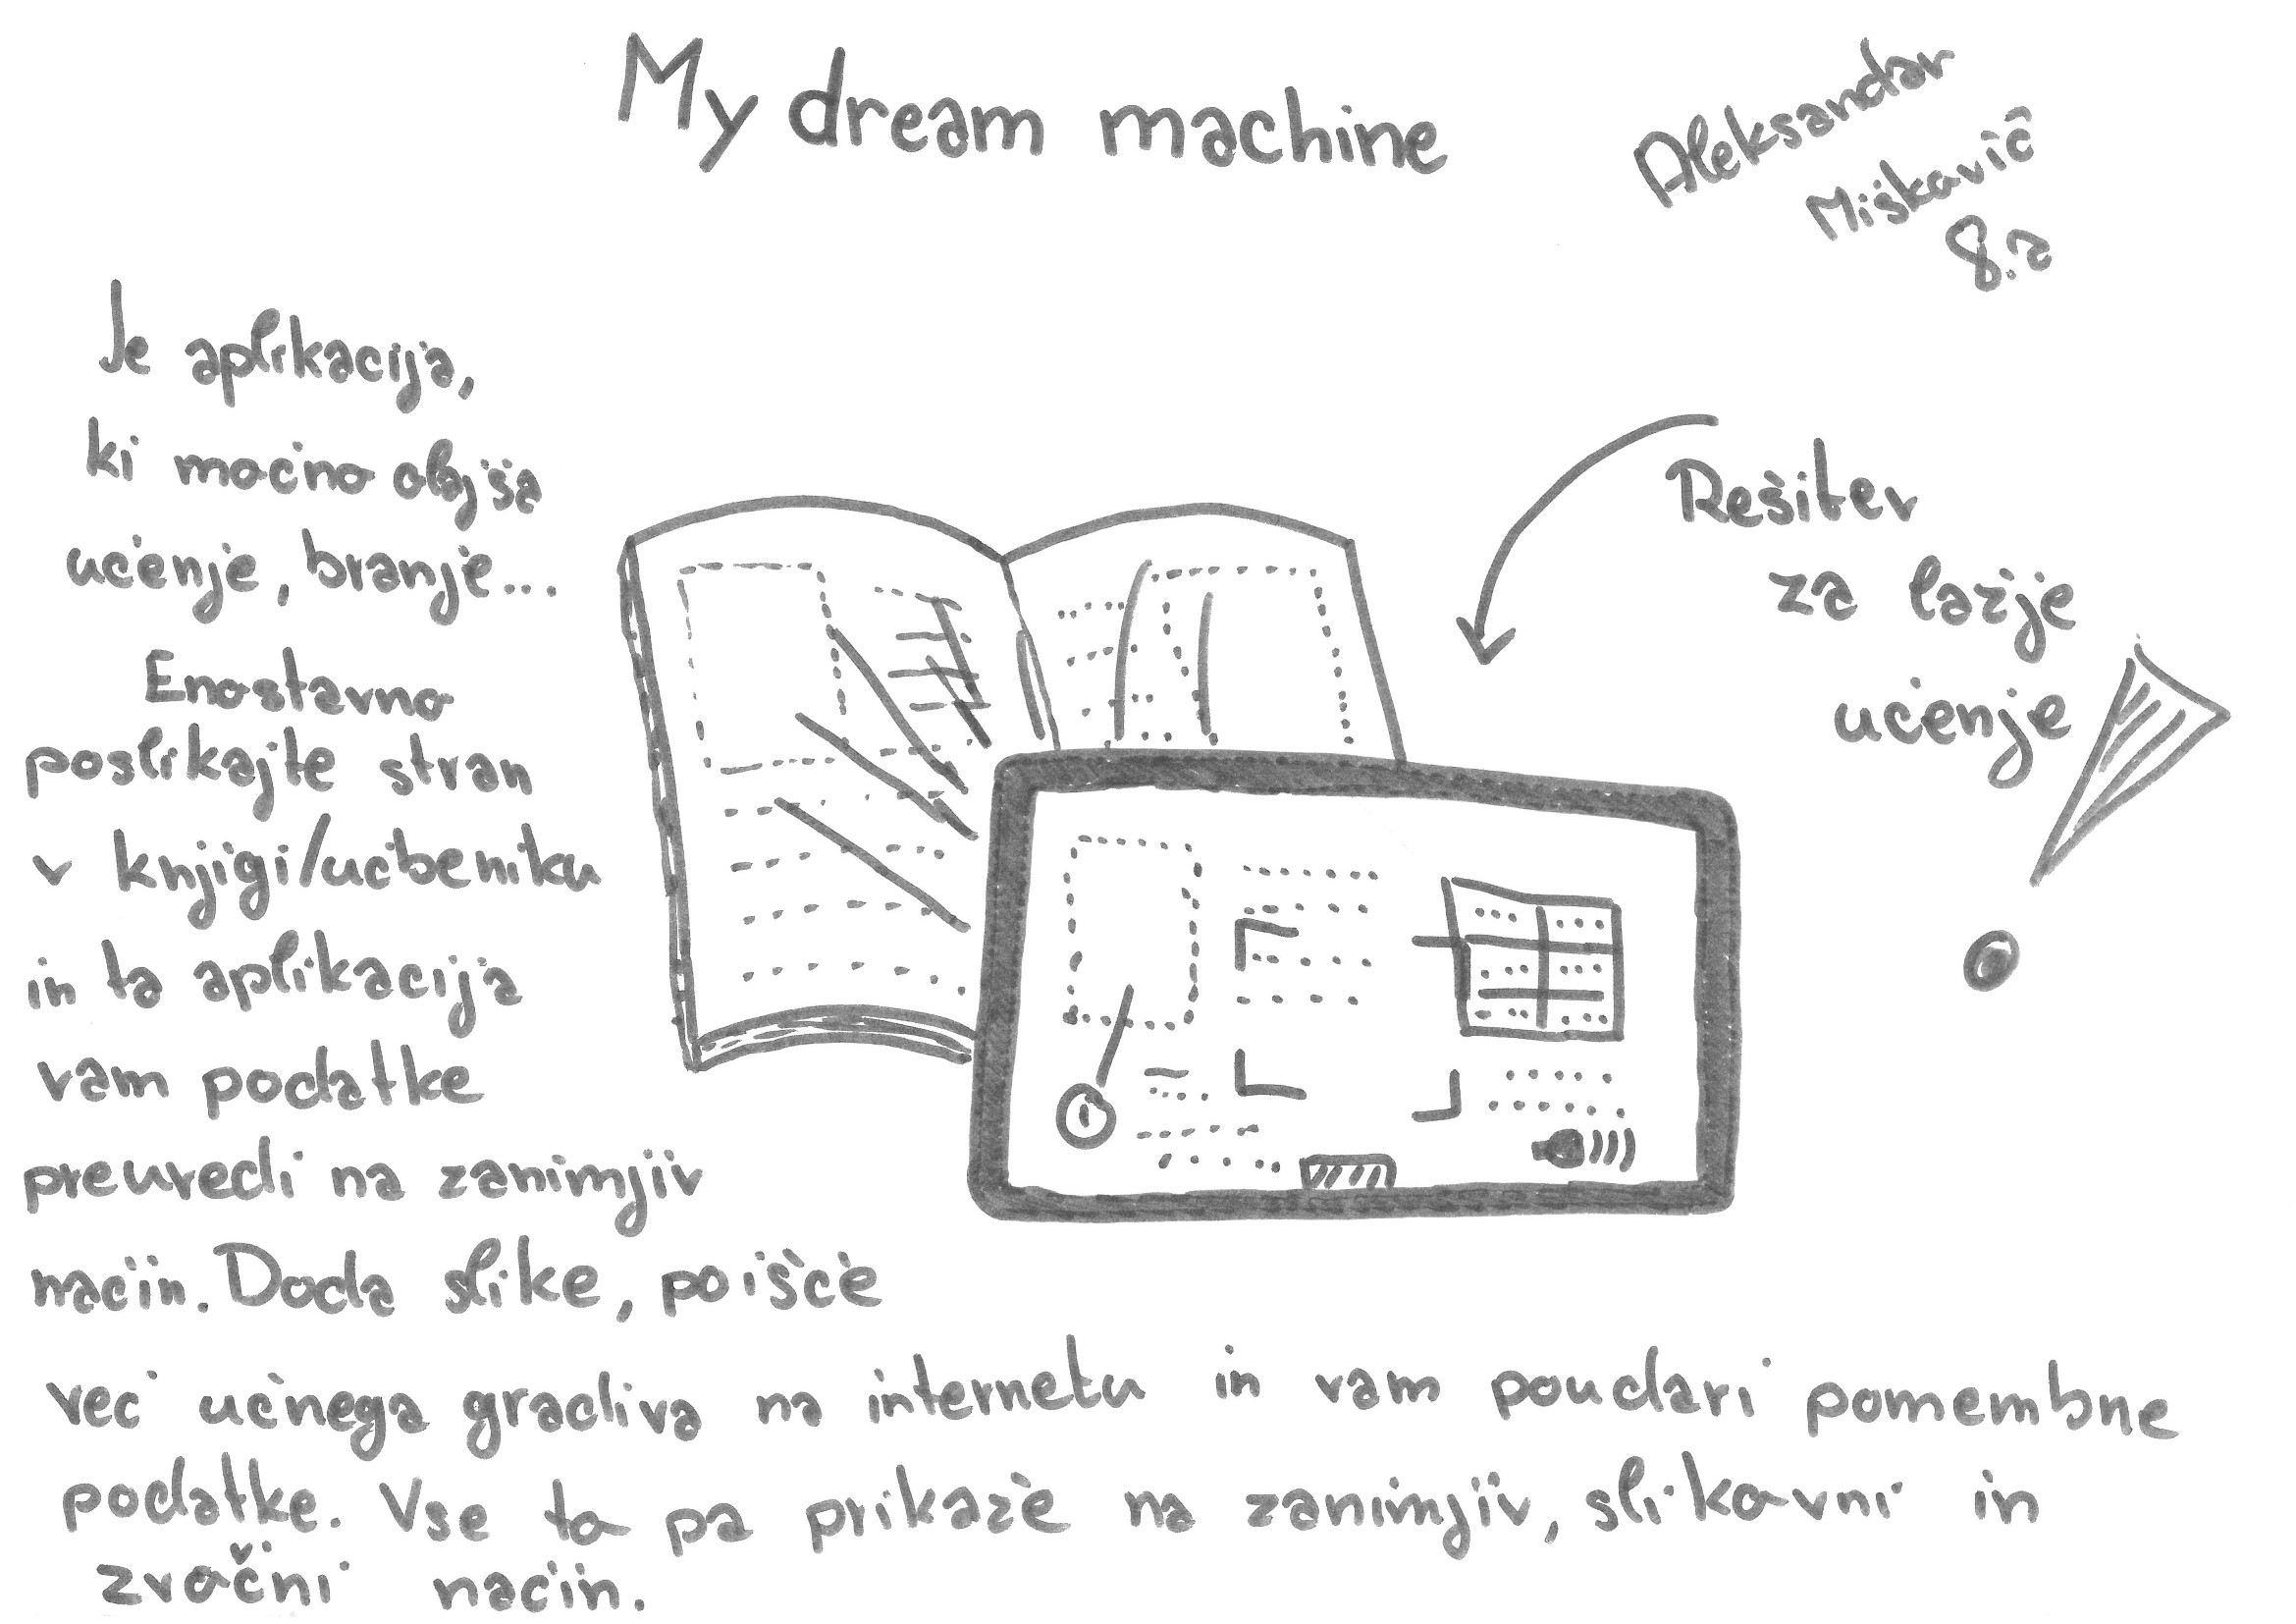 My dream machine
Aleksandar
Miškavič
8.a
Je aplikacija,
ki močno olajša
učenje, branje...
Enostavno
poslikajte stran
v knjigi/učbeniku
in ta aplikacija
vam podatke
preuredi na zanimjiv
način. Doda slike, poišče
več učnega gradiva na internetu in vam poudari pomembne
podatke. Vse to pa prikaže na zanimjiv, slikovni in
zvočni način.
Rešitev
za lažje
učenje
!